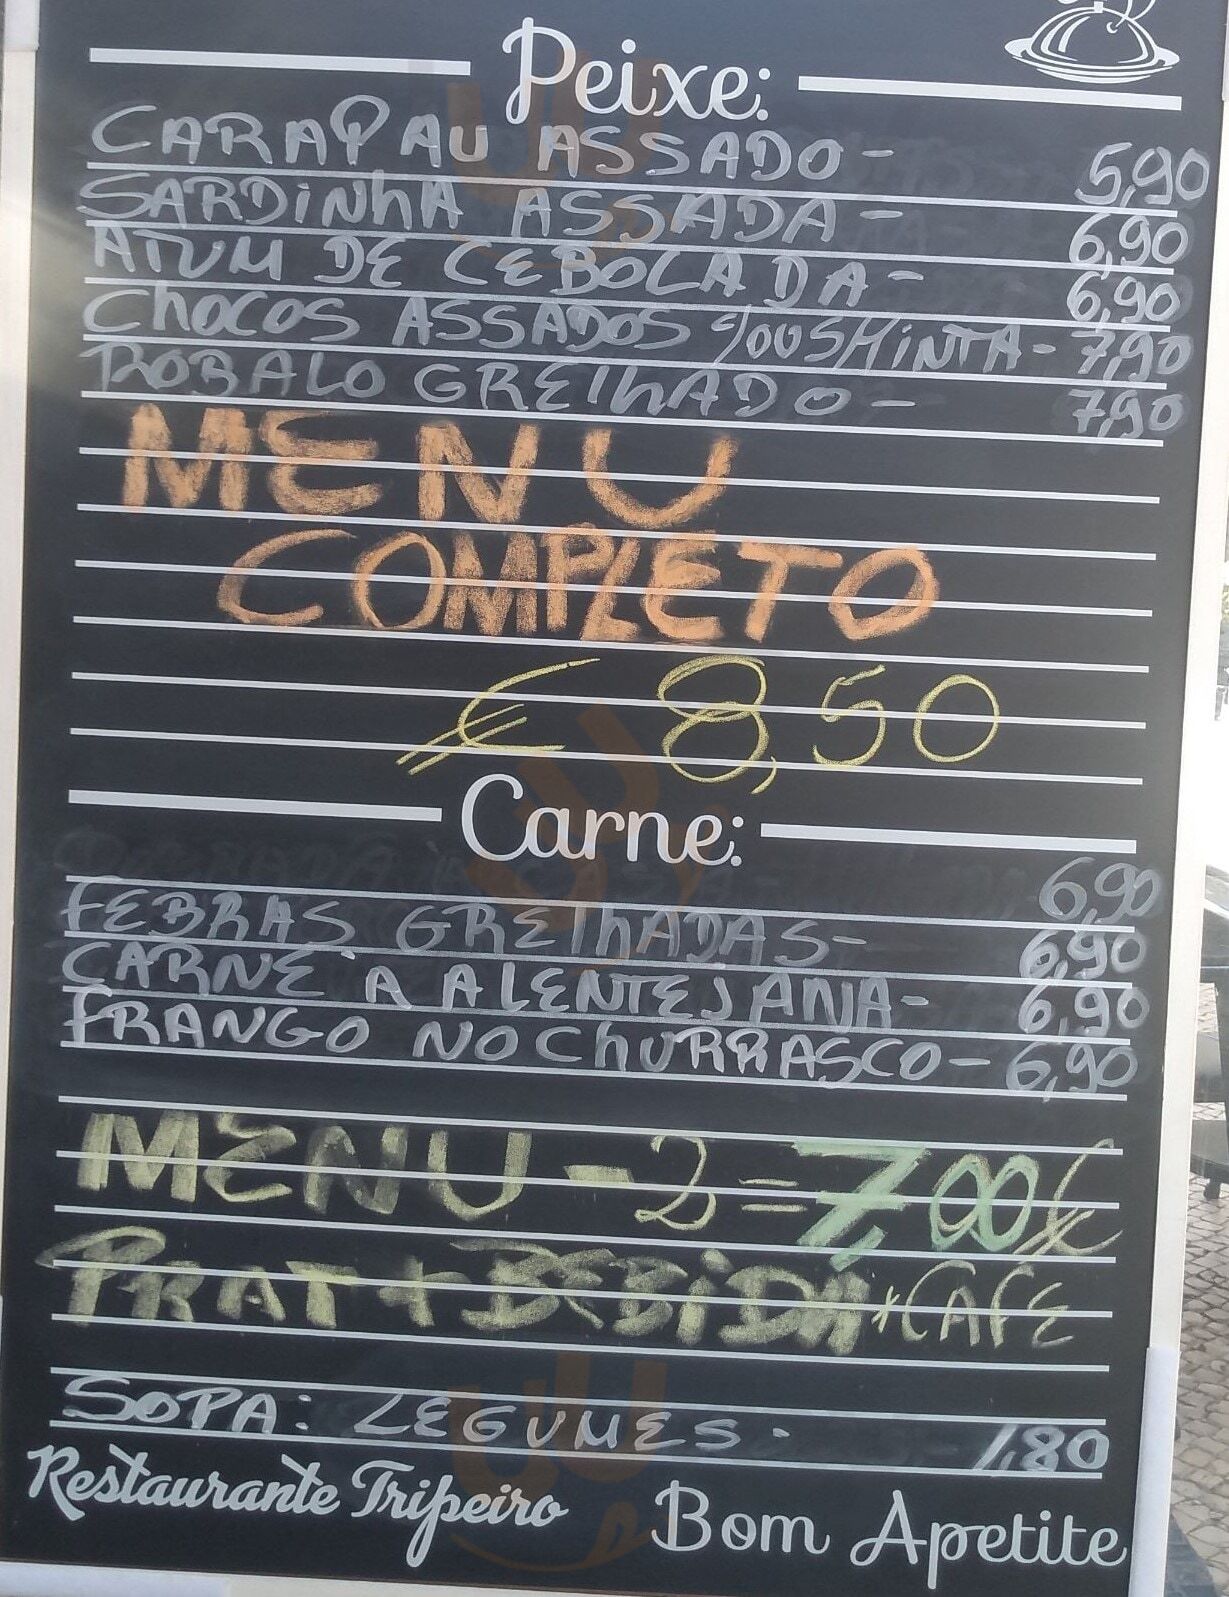 Peixe:
CARAPAU ASSADO - 5,90
SARDINHA ASSADA - 6,90
ATUM DE CEBOLADA - 6,90
CHOCOS ASSADOS C/OU S/TINTA - 7,90
ROBALO GRELHADO - 7,90
MENU
COMPLETO
€ 8,50
Carne:
6,90
FEBRAS GRELHADAS - 6,90
CARNE À ALENTEJANA - 6,90
FRANGO NO CHURRASCO - 6,90
MENU - 2 = 7,00€
PRAT + BEBIDA + CAFE
SOPA: LEGUMES. 1,80
Restaurante Tripeiro
Bom Apetite